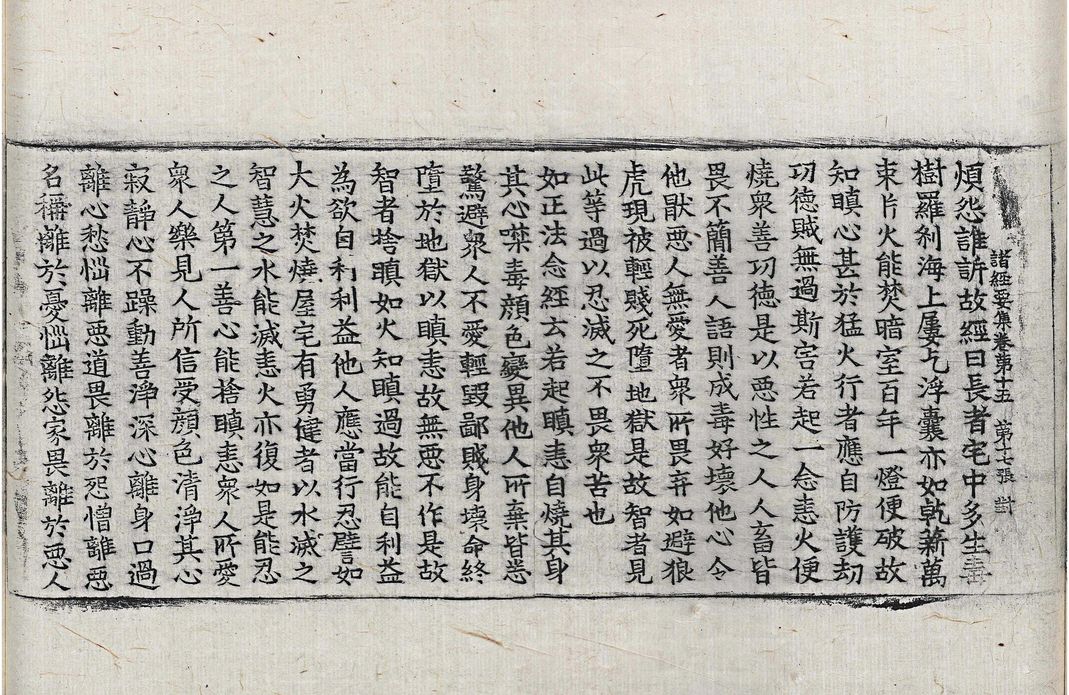 煩怨誰訴故經曰長者宅中多生毒
諸經要集卷第十五　第十七張　對
樹羅剎海上屢乞浮囊亦如乾薪萬
束片火能焚暗室百年一燈便破故
知瞋心甚於猛火行者應自防護劫
功德賊無過斯害若起一念恚火便
燒衆善功德是以惡性之人人畜皆
畏不簡善人語則成毒好壞他心令
他猒惡人無愛者衆所畏弃如避狼
虎現被輕賤死墮地獄是故智者見
此等過以忍滅之不畏衆苦也
如正法念經云若起瞋恚自燒其身
其心㗱毒顏色變異他人所棄皆悉
驚避衆人不愛輕毀鄙賤身壞命終
墮於地獄以瞋恚故無惡不作是故
智者捨瞋如火知瞋過故能自利益
為欲自利利益他人應當行忍譬如
大火焚燒屋宅有勇健者以水滅之
智慧之水能滅恚火亦復如是能忍
之人第一善心能捨瞋恚衆人所愛
衆人樂見人所信受顏色清淨其心
寂靜心不躁動善淨深心離身口過
離心愁惱離惡道畏離於怨憎離惡
名稱離於憂惱離怨家畏離於惡人